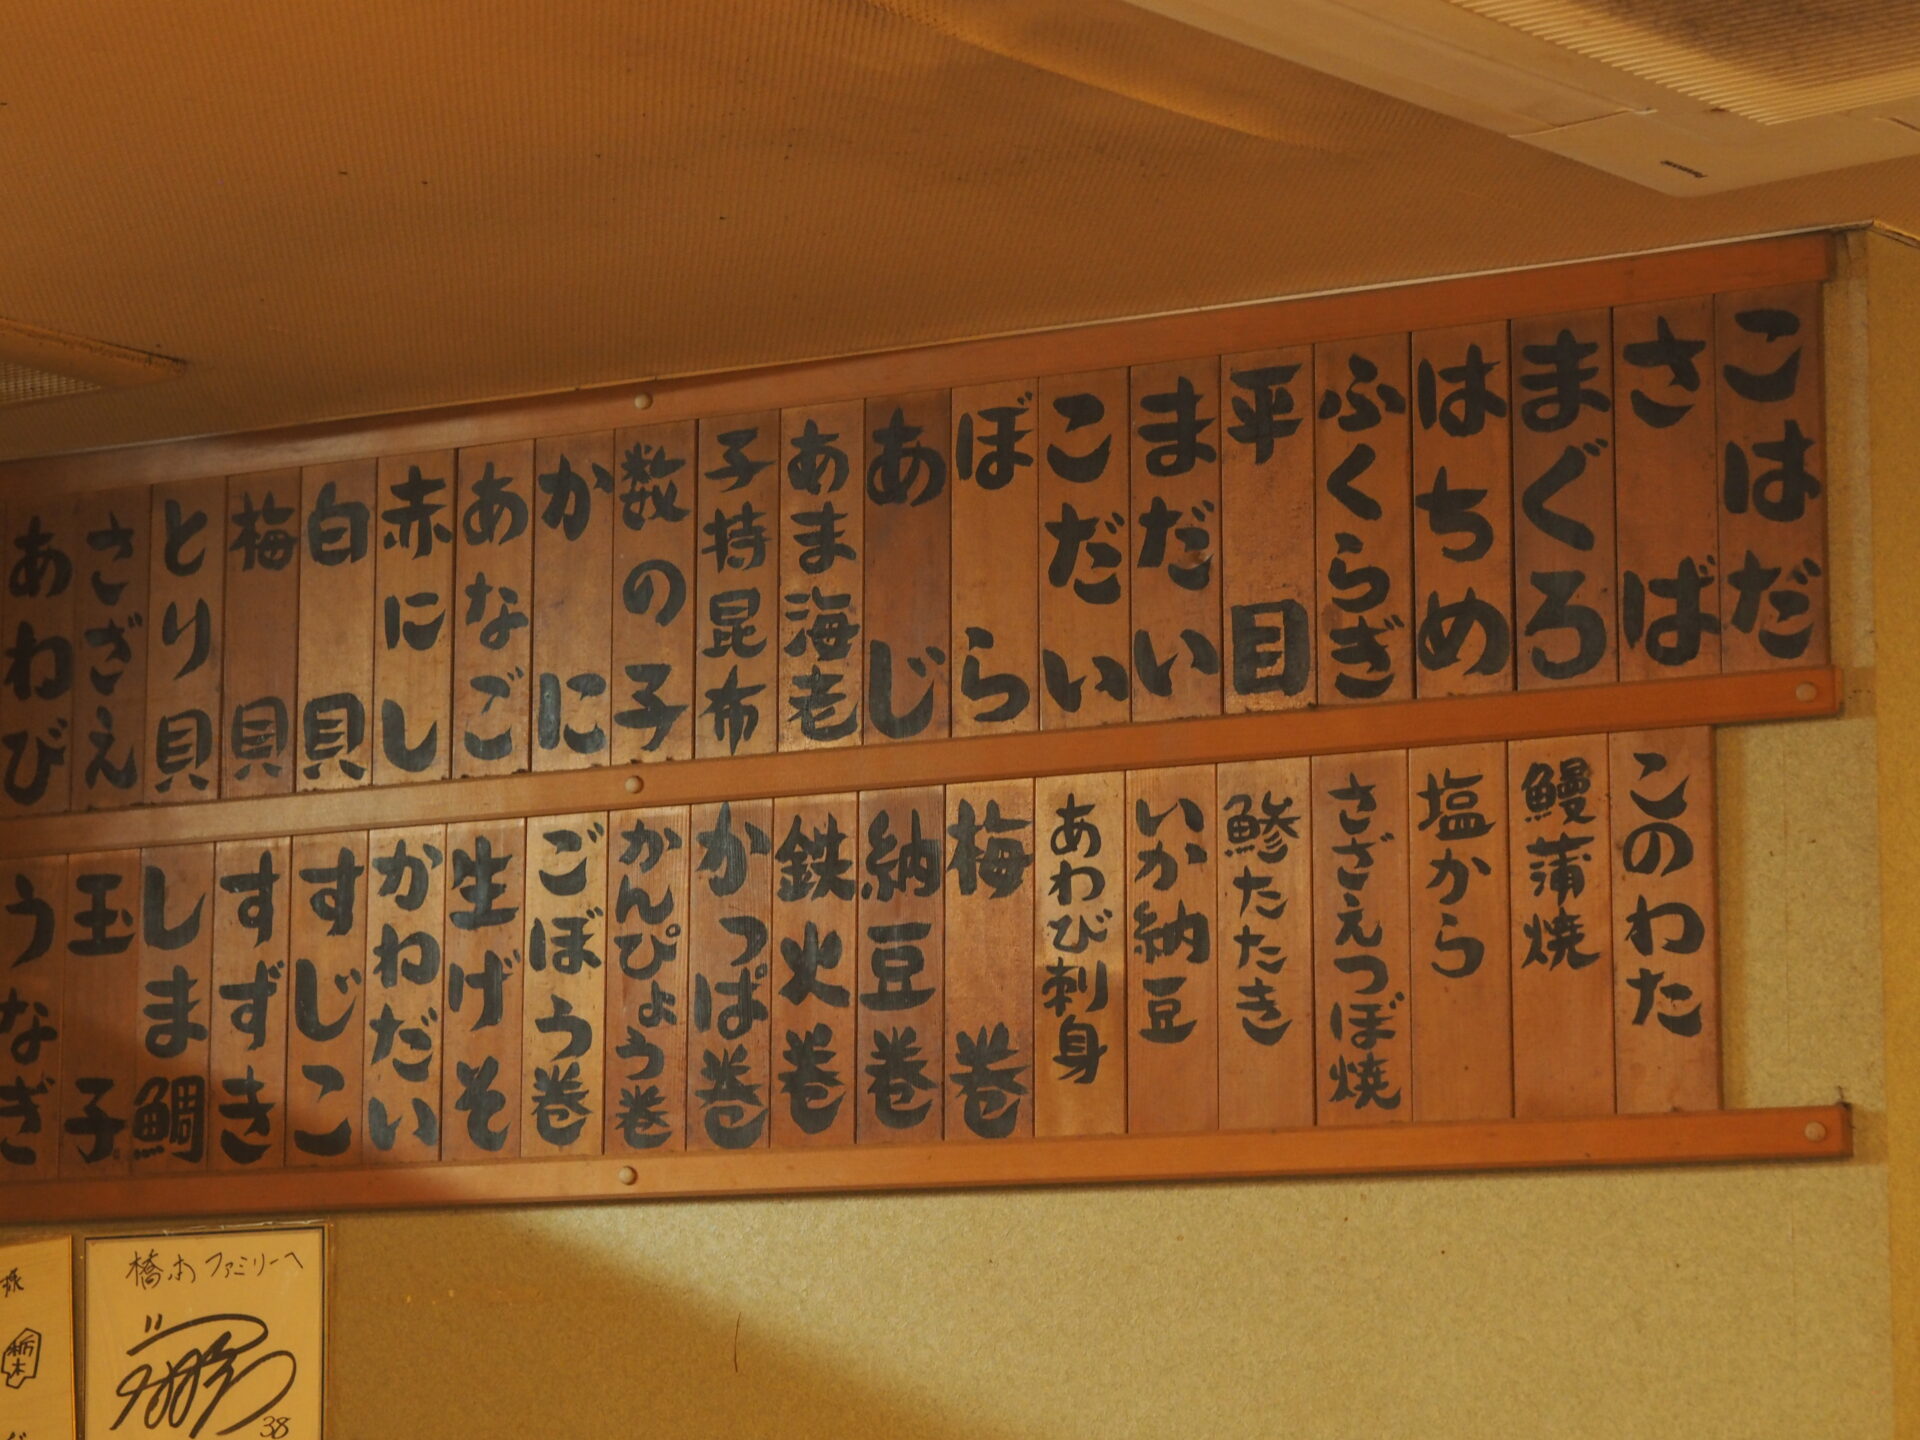 こはだ
さば
まぐろ
はちめ
ふくらぎ
平目
まだい
こだい
ぼら
あじ
あま海老
子持昆布
数の子
かに
あなご
赤にし
白貝
梅貝
とり貝
さざえ
あわび
このわた
鰻蒲焼
塩から
さざえつぼ焼
鯵たたき
いか納豆
あわび刺身
梅巻
納豆巻
鉄火巻
かっぱ巻
かんぴょう巻
ごぼう巻
生げそ
かわだい
すじこ
すずき
しま鯛
玉子
うなぎ
橋本ファミリーへ
38
様
栃木